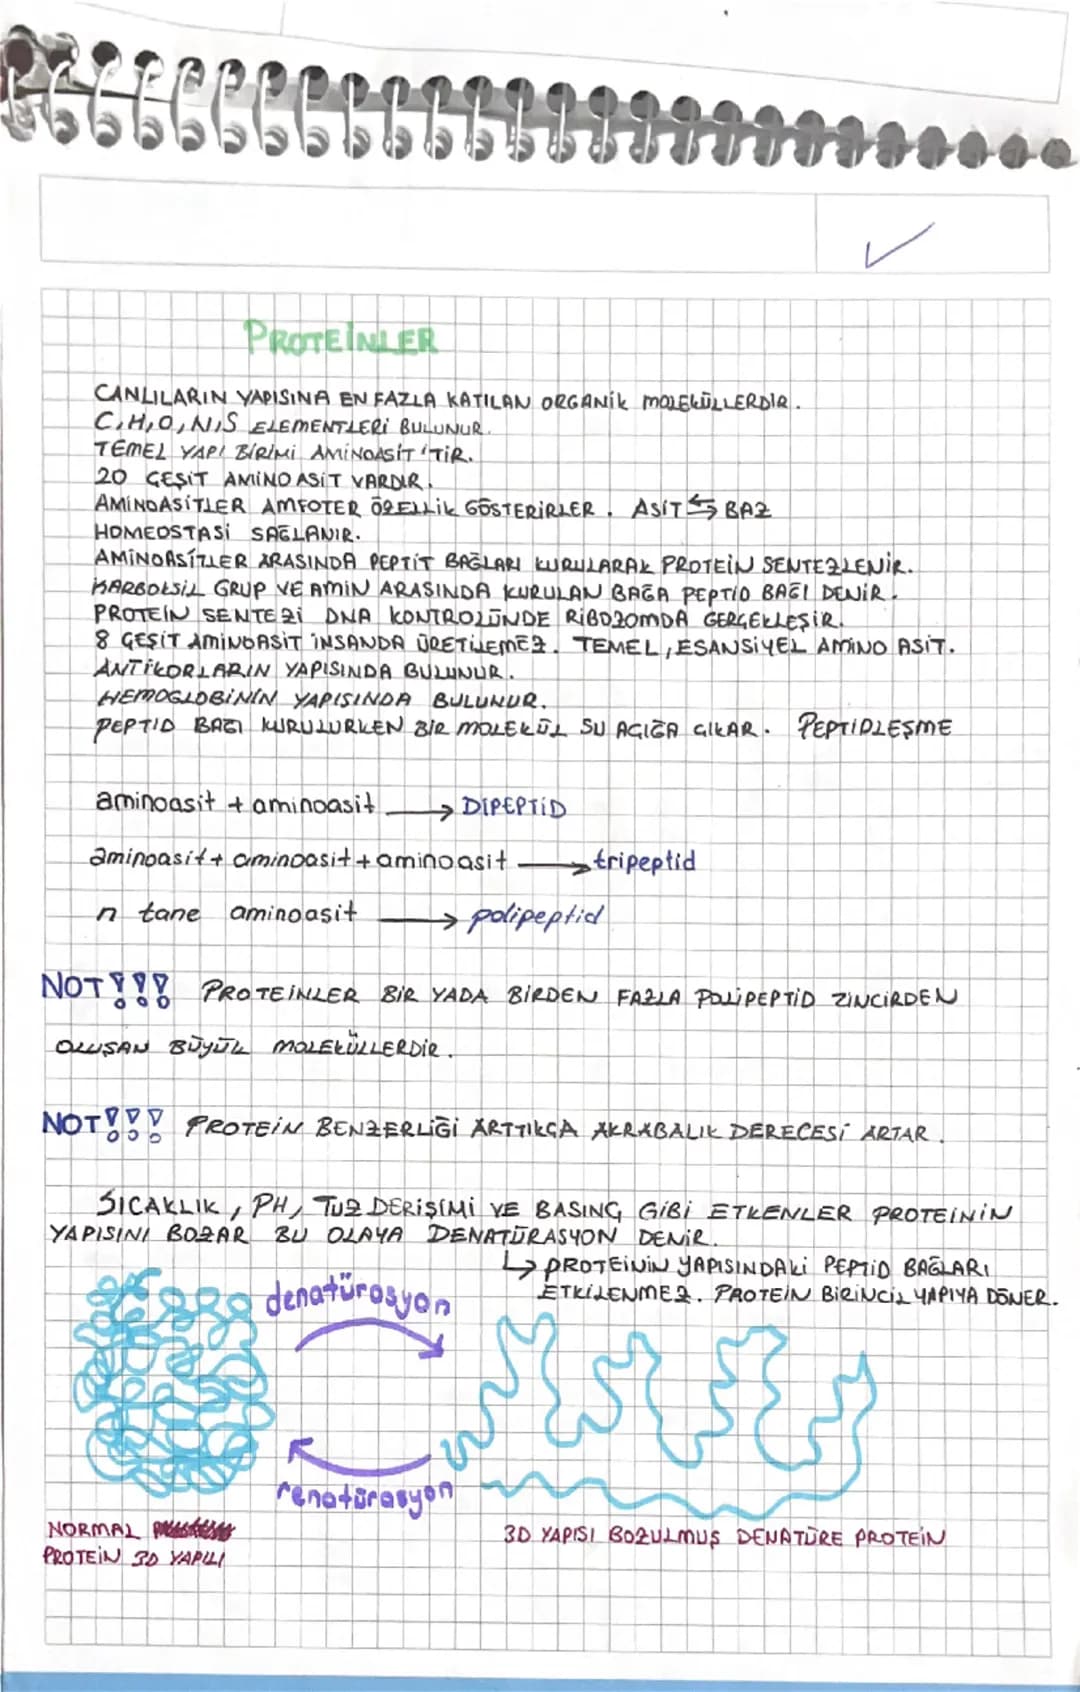 PROTEİNLER
CANLILARIN YAPISINA EN FAZLA KATILAN ORGANİK MOLEKÜLLERDİR.
C,H,O,N,S ELEMENTLERİ BULUNUR.
TEMEL YAPI BİRİMİ AMİNOASİT'TİR.
20 ÇEŞİT AMİNO ASİT VARDIR.
AMİNOASİTLER AMFOTER ÖZELLİK GÖSTERİRLER. ASİT ⇆ BAZ
HOMEOSTASİ SAĞLANIR.
AMİNOASİTLER ARASINDA PEPTİT BAĞLARI KURULARAK PROTEİN SENTEZLENİR.
KARBOKSİL GRUP VE AMİN ARASINDA KURULAN BAĞA PEPTİD BAĞI DENİR.
PROTEİN SENTEZİ DNA KONTROLÜNDE RİBOZOMDA GERÇEKLEŞİR.
8 ÇEŞİT AMİNOASİT İNSANDA ÜRETİLEMEZ. TEMEL, ESANSİYEL AMİNO ASİT.
ANTİKORLARIN YAPISINDA BULUNUR.
HEMOGLOBİNİN YAPISINDA BULUNUR.
PEPTİD BAĞI KURULURKEN BİR MOLEKÜL SU AÇIĞA ÇIKAR. PEPTİDLEŞME
aminoasit + aminoasit → DİPEPTİD
aminoasit + aminoasit + aminoasit → tripeptid
n tane aminoasit → polipeptid
NOT!!! PROTEİNLER BİR YADA BİRDEN FAZLA POLİPEPTİD ZİNCİRDEN
OLUŞAN BÜYÜK MOLEKÜLLERDİR.
NOT!!! PROTEİN BENZERLİĞİ ARTTIKÇA AKRABALIK DERECESİ ARTAR.
SICAKLIK, PH, TUZ DERİŞİMİ VE BASINÇ GİBİ ETKENLER PROTEİNİN
YAPISINI BOZAR BU OLAYA DENATÜRASYON DENİR.
↳ PROTEİNİN YAPISINDAKİ PEPTİD BAĞLARI
ETKİLENMEZ. PROTEİN BİRİNCİL YAPIYA DÖNER.
denatürasyon
renatürasyon
NORMAL
PROTEİN 3D YAPILI
3D YAPISI BOZULMUŞ DENATÜRE PROTEİN